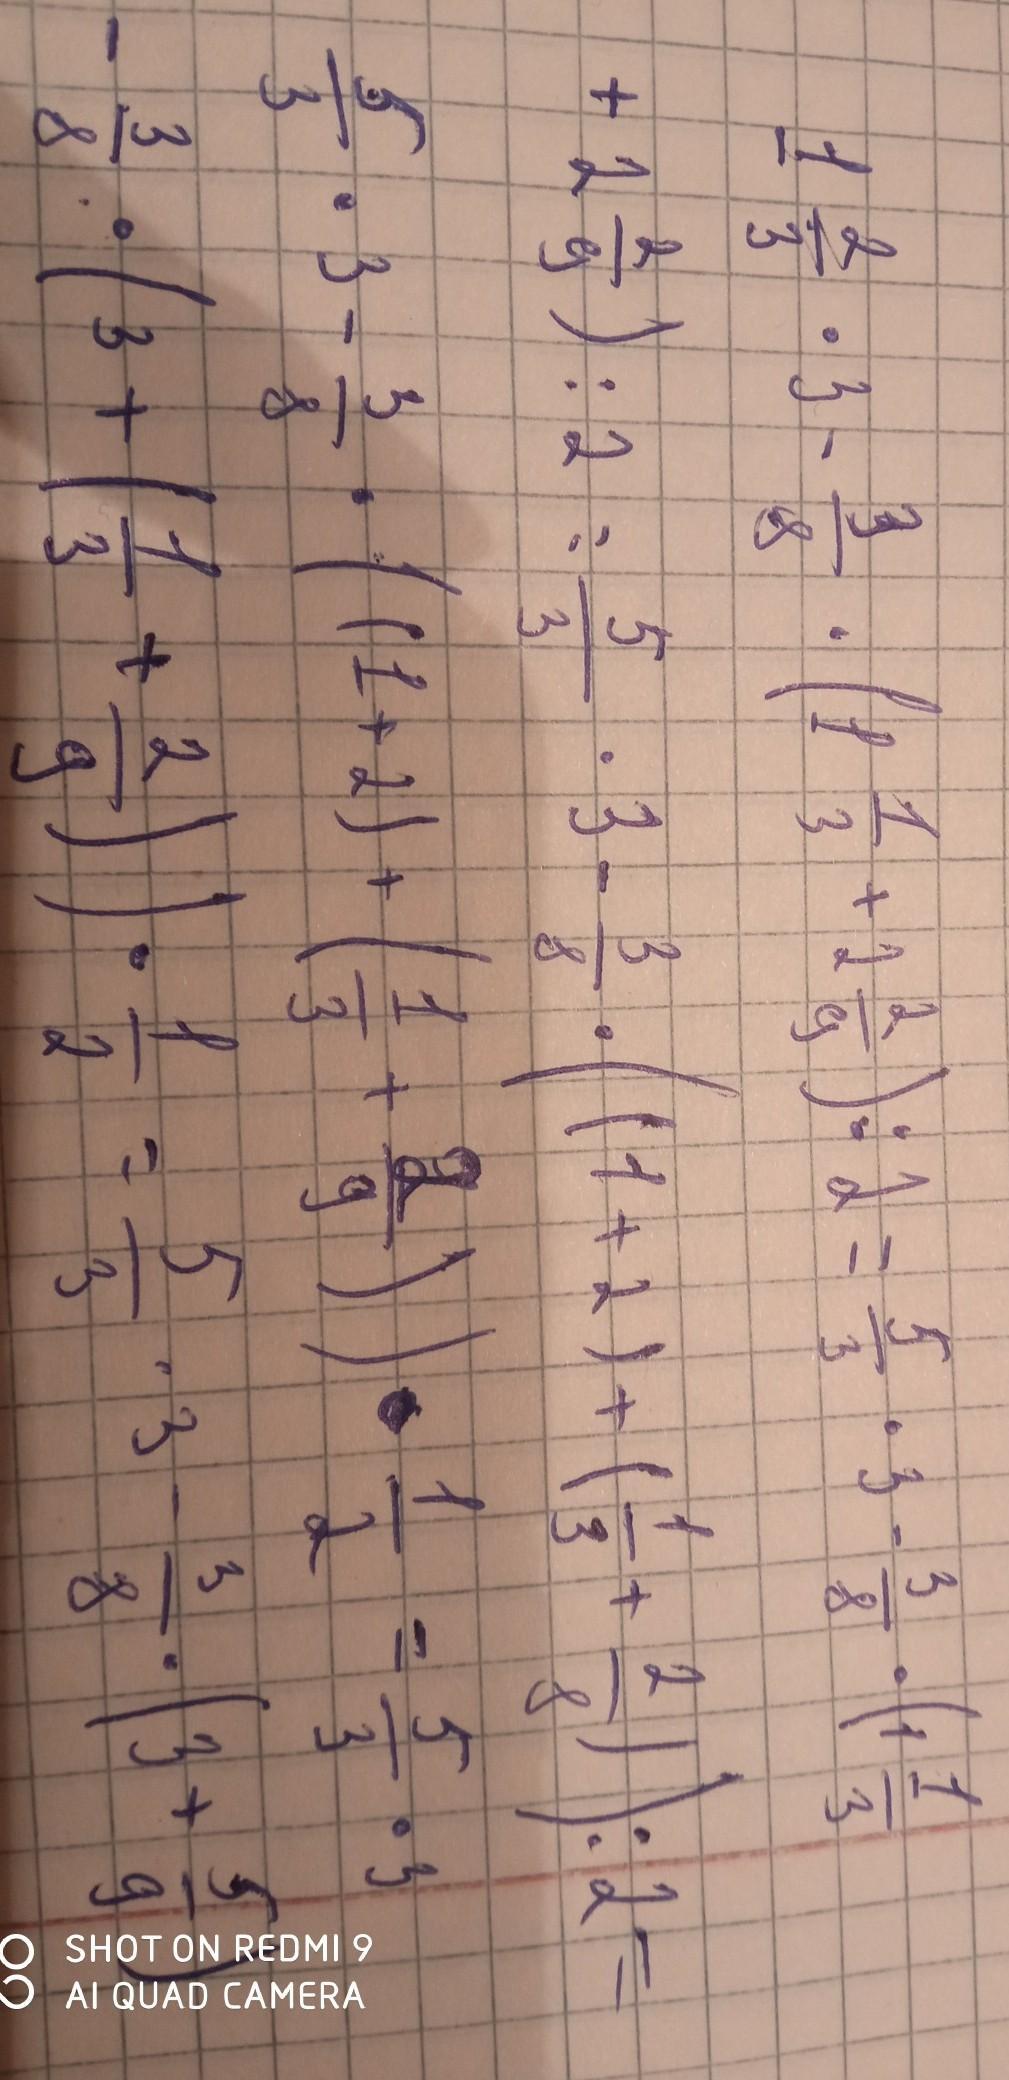 1 2/3 · 3 - 3/8 · (1 1/3 + 2 2/9) : 2 = 5/3 · 3 - 3/8 · (1 1/3
+ 2 2/9) : 2 = 5/3 · 3 - 3/8 · ((1 + 2) + (1/3 + 2/8)) : 2 =
5/3 · 3 - 3/8 · ((1 + 2) + (1/3 + 2/9)) · 1/2 = 5/3 · 3
- 3/8 · (3 + (1/3 + 2/9)) · 1/2 = 5/3 · 3 - 3/8 · (3 + 5/9)
SHOT ON REDMI 9
AI QUAD CAMERA